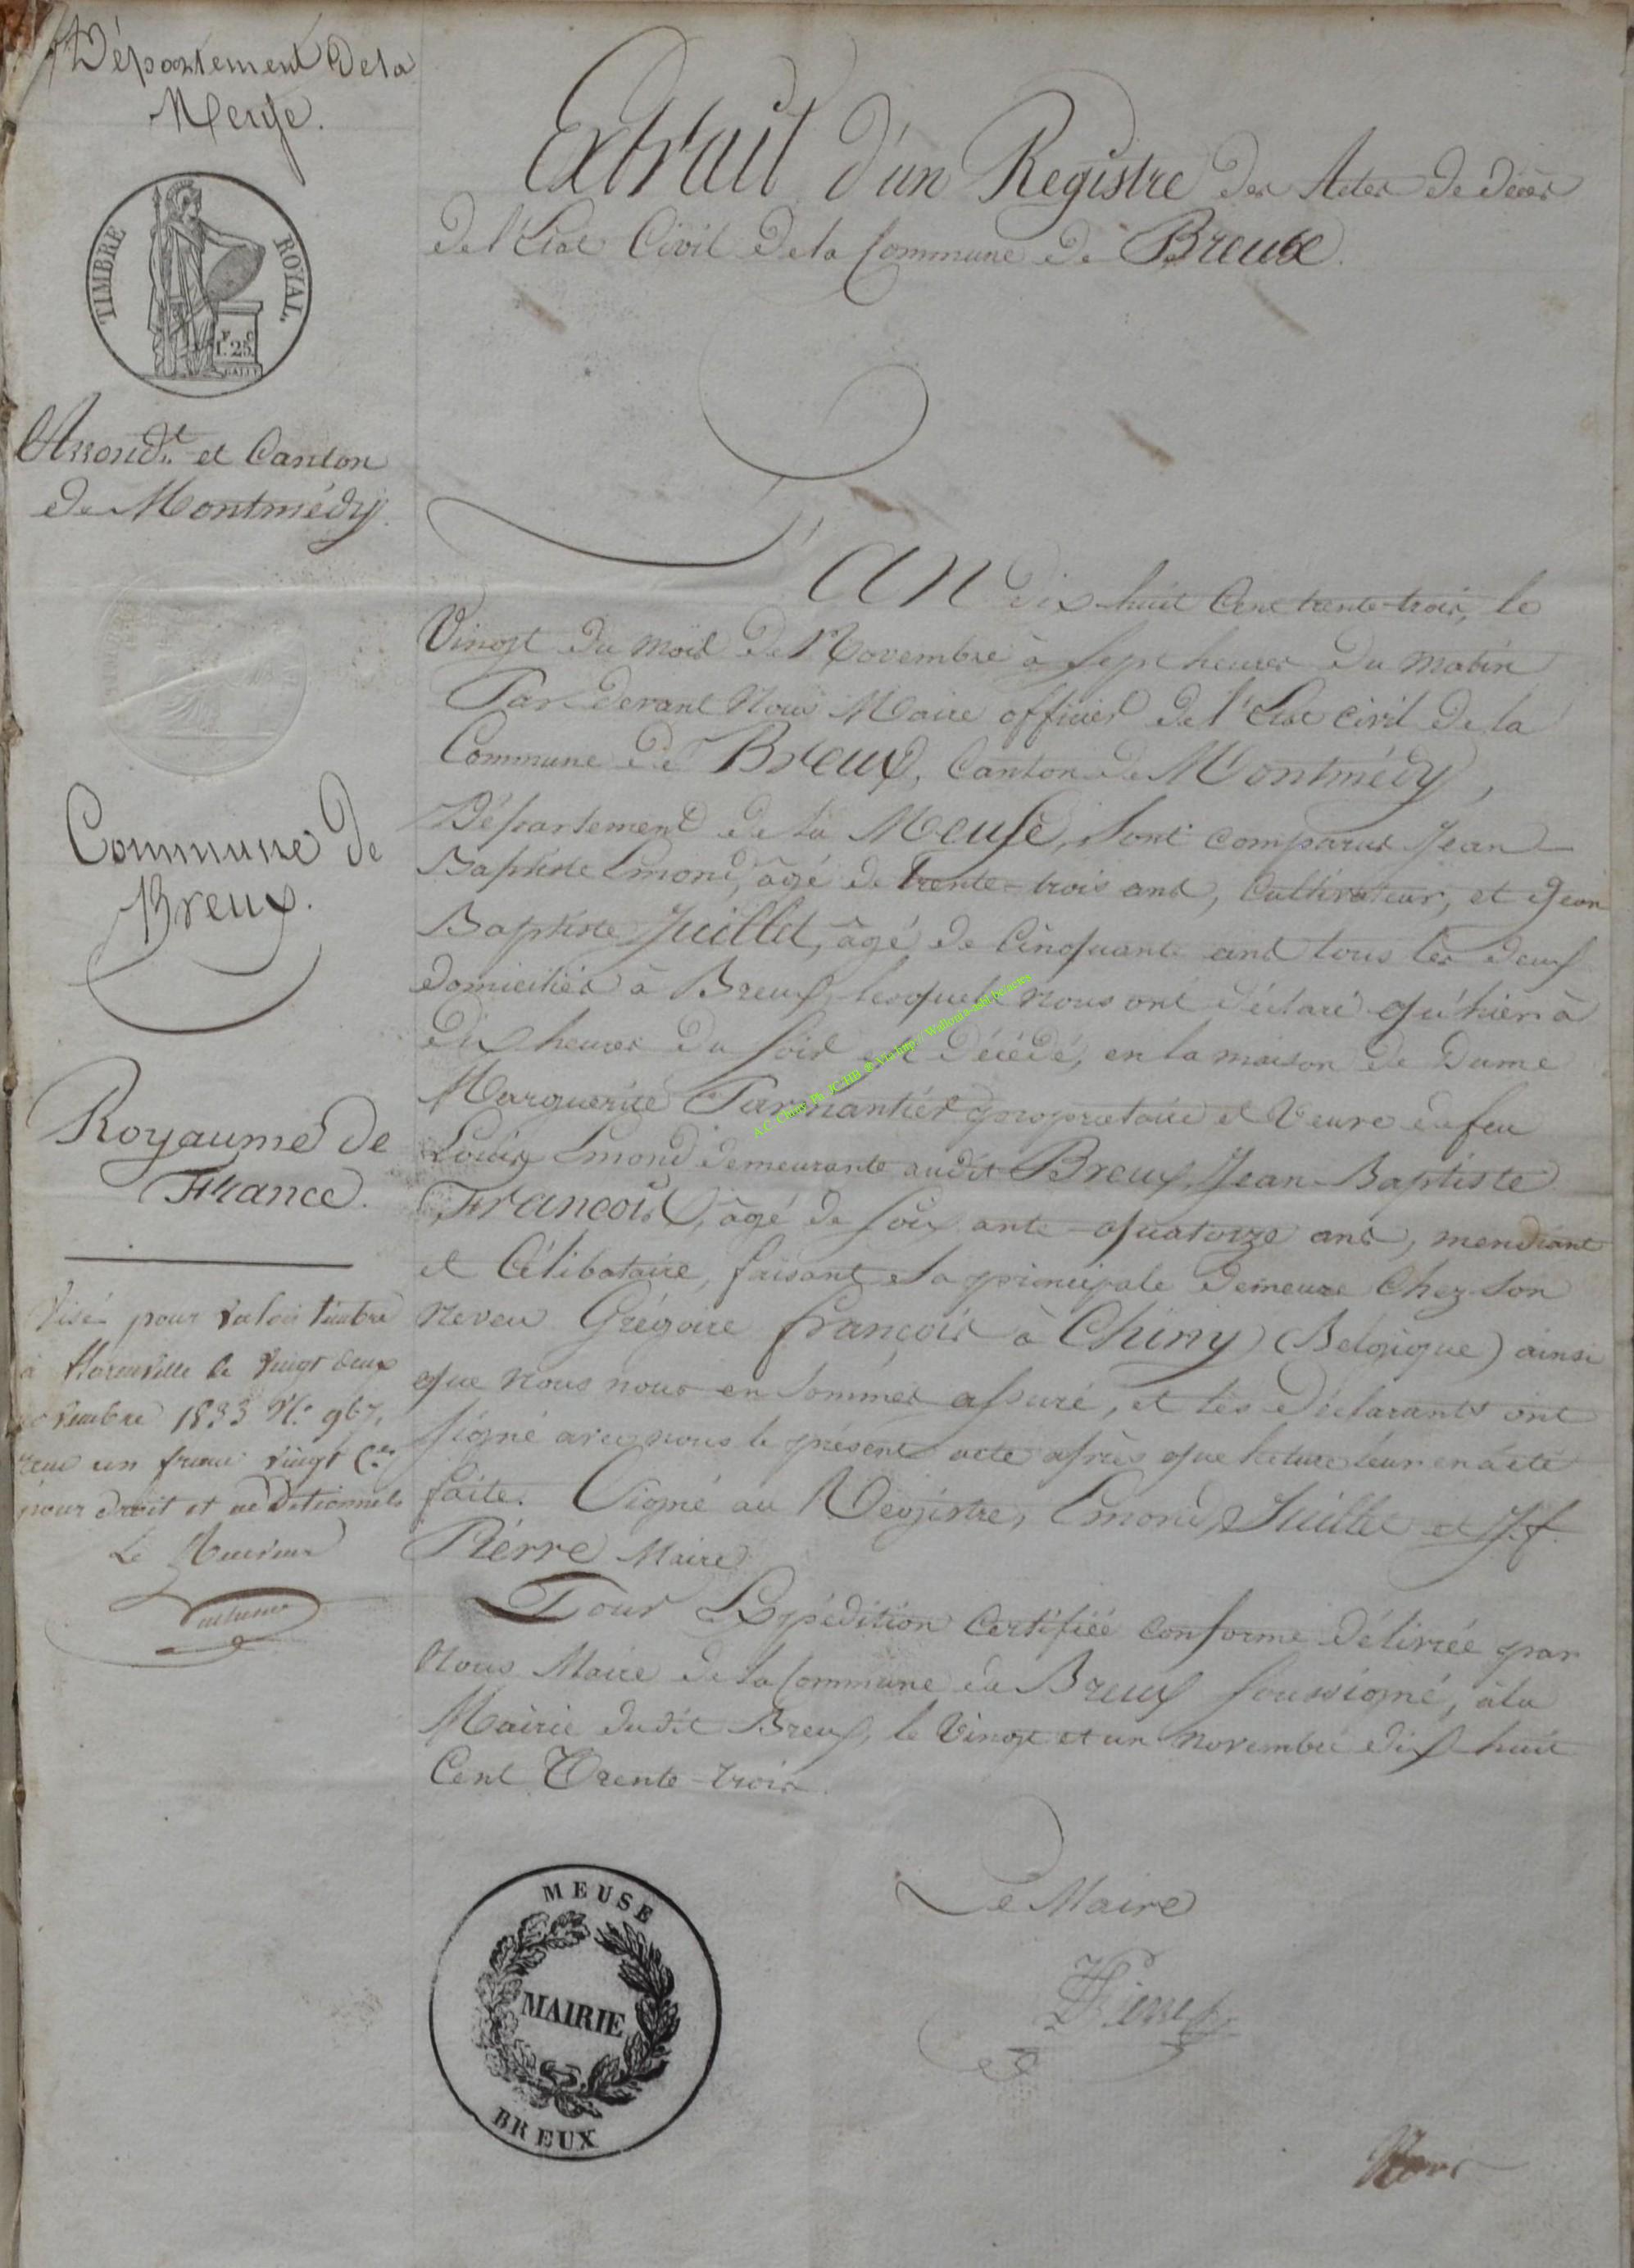 Département De la
Meuse.
TIMBRE ROYAL.
F. C.
1.25
Arrond.t et Canton
de Montmédy.
Commune de
Breux.
Royaume de
France.
Visé pour valoir timbre
à Florenville le vingt deux
novembre 1833 N.o 967,
reçu un franc vingt C.es
pour droit et additionnels
Le Receveur
Extrait d'un Registre des Actes de décès
de l'Etat Civil de la Commune de Breux.
L'AN dix-huit Cent trente-trois, le
Vingt du mois de Novembre à Sept heures du matin
Par devant Nous Maire officier de l'Etat civil de la
Commune de Breux, Canton de Montmédy,
Département de la Meuse, sont comparus Jean
Baptiste Emond, âgé de trente-trois ans, Cultivateur, et Jean
Baptiste Juillet, âgé de Cinquante ans tous les deux
domiciliés à Breux, lesquels nous ont déclaré qu'hier à
dix heures du soir est décédé, en la maison de Dame
Marguerite Parmantier propriétaire et Veuve de feu
Louis Emond demeurante audit Breux, Jean-Baptiste
François, âgé de soixante-quatorze ans, mendiant
et Célibataire, faisant sa principale demeure Chez Son
neveu Grégoire François à Chiny (Belgique) ainsi
que Nous nous en sommes assuré, et les déclarants ont
signé avec nous le présent acte après que lecture leur en a été
faite. Signé au Registre, Emond, Juillet et J.f.
Pierre Maire
Pour Expédition Certifiée conforme délivrée par
Nous Maire de la Commune de Breux soussigné, à la
Mairie dudit Breux, le Vingt et un novembre dix huit
Cent Trente-trois.
Le Maire
Pierre
MEUSE
MAIRIE
BREUX